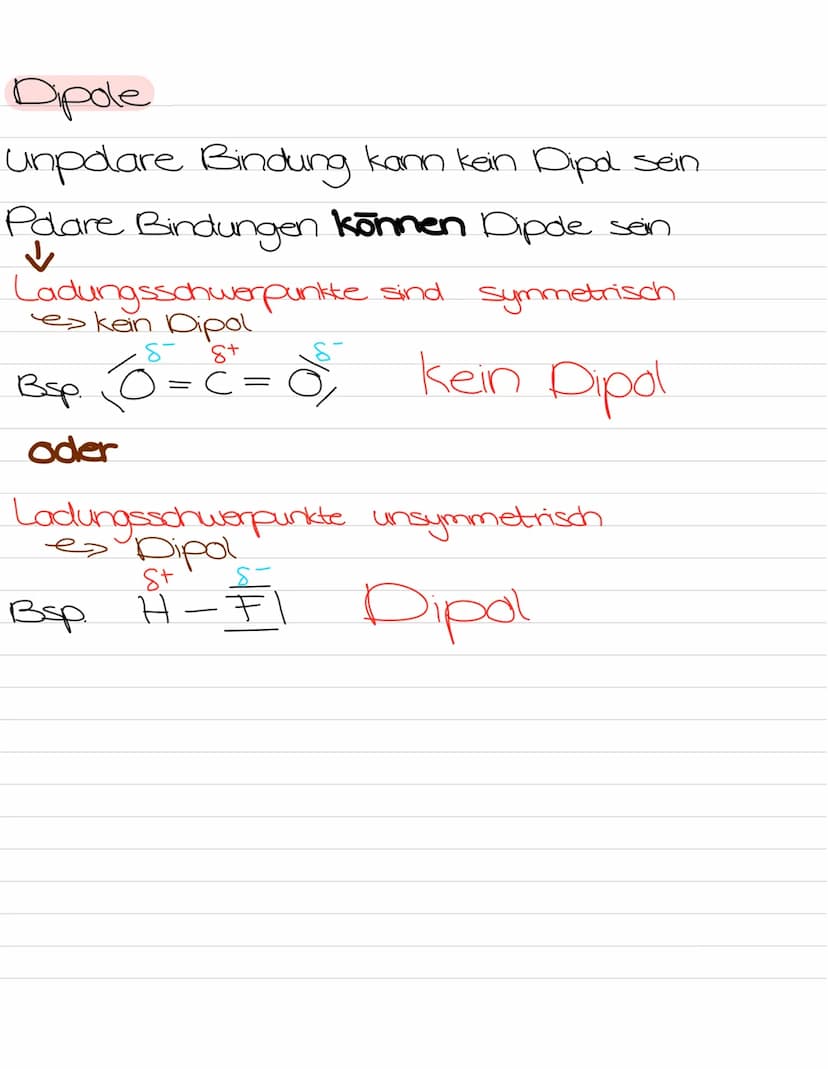 Dipole
unpolare Bindung kann kein Dipol sein
Polare Bindungen können Dipole sein
↓
Ladungsschwerpunkte sind symmetrisch
↪ kein Dipol
δ- δ+ δ-
Bsp. ⟨O = C = O⟩ kein Dipol
oder
Ladungsschwerpunkte unsymmetrisch
↪ Dipol
δ+ δ-
Bsp. H – F| Dipol